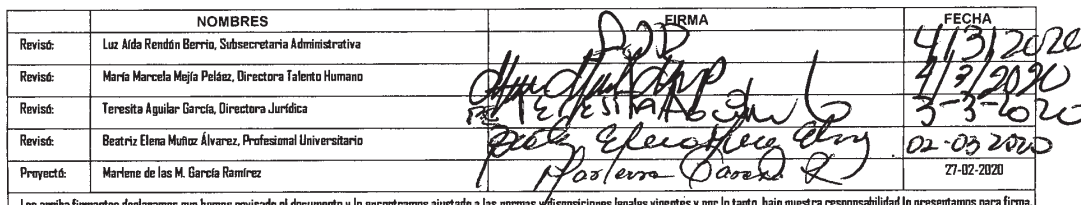 NOMBRES FIRMA FECHA
Revisó: Luz Aída Rendón Berrio, Subsecretaria Administrativa 4/3/2020
Revisó: María Marcela Mejía Peláez, Directora Talento Humano 4/3/2020
Revisó: Teresita Aguilar García, Directora Jurídica 3-3-2020
Revisó: Beatriz Elena Muñoz Álvarez, Profesional Universitario 02-03 2020
Proyectó: Marlene de las M. García Ramírez 27-02-2020
Los arriba firmantes declaramos que hemos revisado el documento y lo encontramos ajustado a las normas y disposiciones legales vigentes y por lo tanto, bajo nuestra responsabilidad lo presentamos para firma.